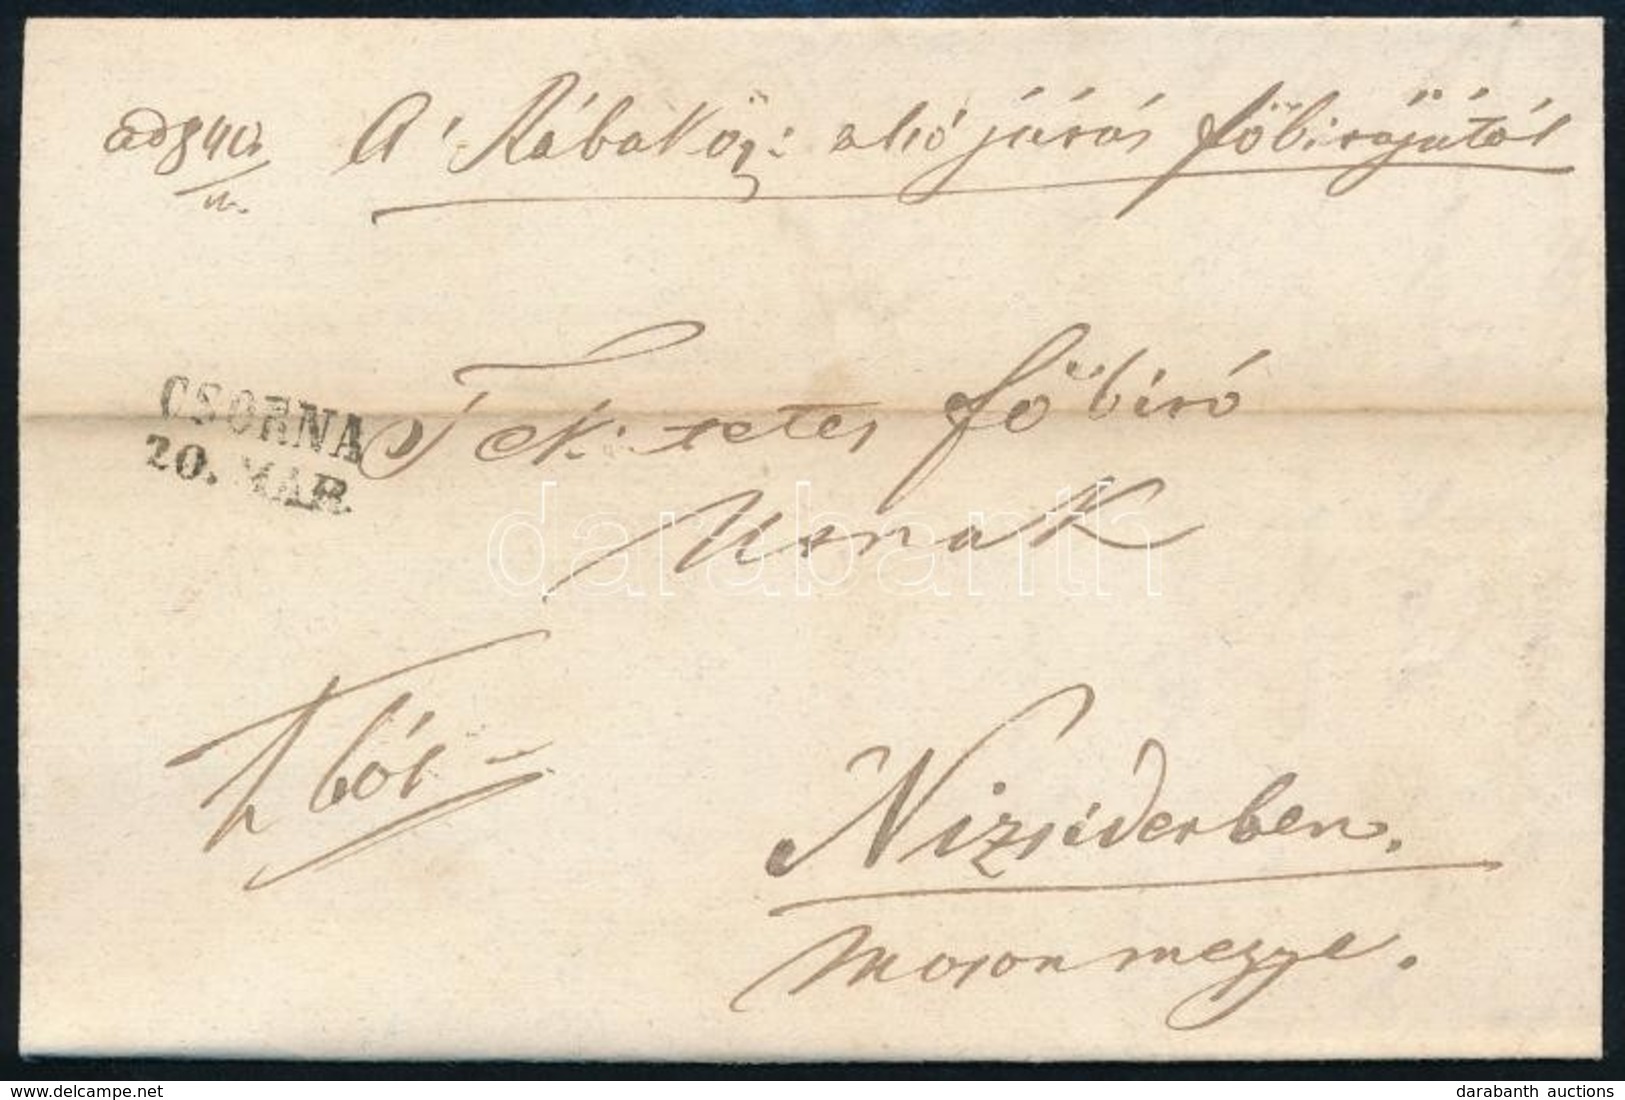 A' Rábaköz: alsó járás főbírájától
CSORNA
20. MAR.
Tek: tetes főbíró
Urnak
ból
Nizsiderben.
Moson megye.
darabanth
delcampe.net
darabanth auctions